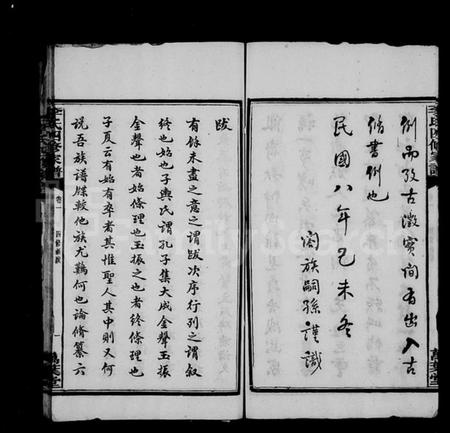 例而改古徵實間有出入古
脩書例也
民國八年己未冬
闔族嗣孫謹識
李氏四修家譜
萬葉堂
跋
有餘未盡之意之謂跋次序行列之謂叙
終也始也子輿氏謂孔子集大成金聲玉振
金聲也者始條理也玉振之也者終條理也
子夏云有始有卒者其惟聖人其中則又何
說吾族譜牒較他族尤難何也論脩纂六
李氏四修家譜
卷一
萬葉堂
FamilySearch